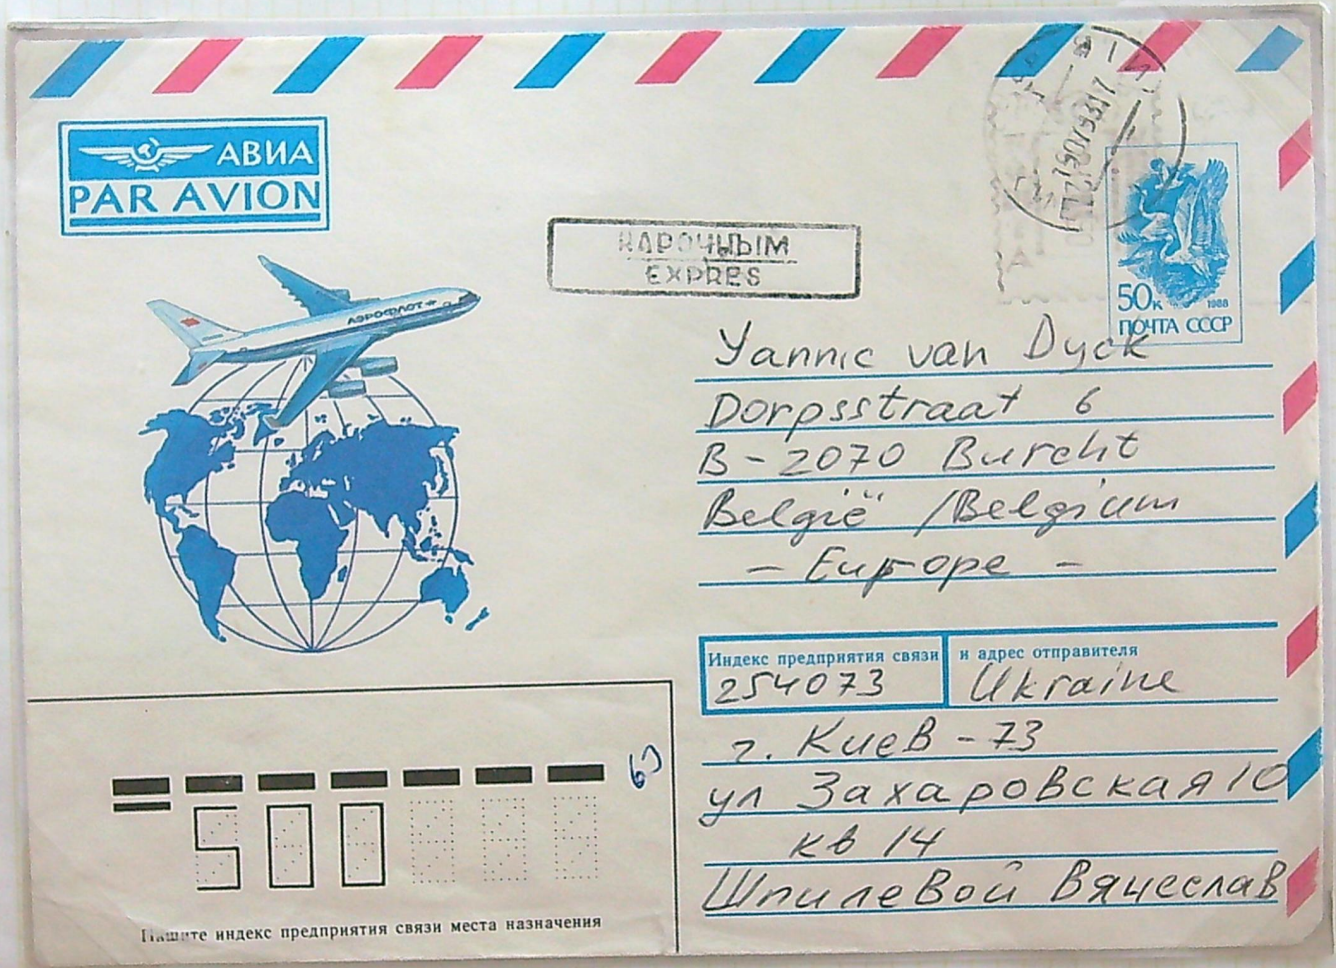 АВИА
PAR AVION
НАРОЧНЫМ
EXPRES
АЭРОФЛОТ
50к
1988
ПОЧТА СССР
Yannic van Dyck
Dorpsstraat 6
B - 2070 Burcht
België / Belgium
- Europe -
Индекс предприятия связи и адрес отправителя
254073 Ukraine
г. Киев - 73
ул Захаровская 10
кв 14
Шпилевой Вячеслав
500
Пишите индекс предприятия связи места назначения